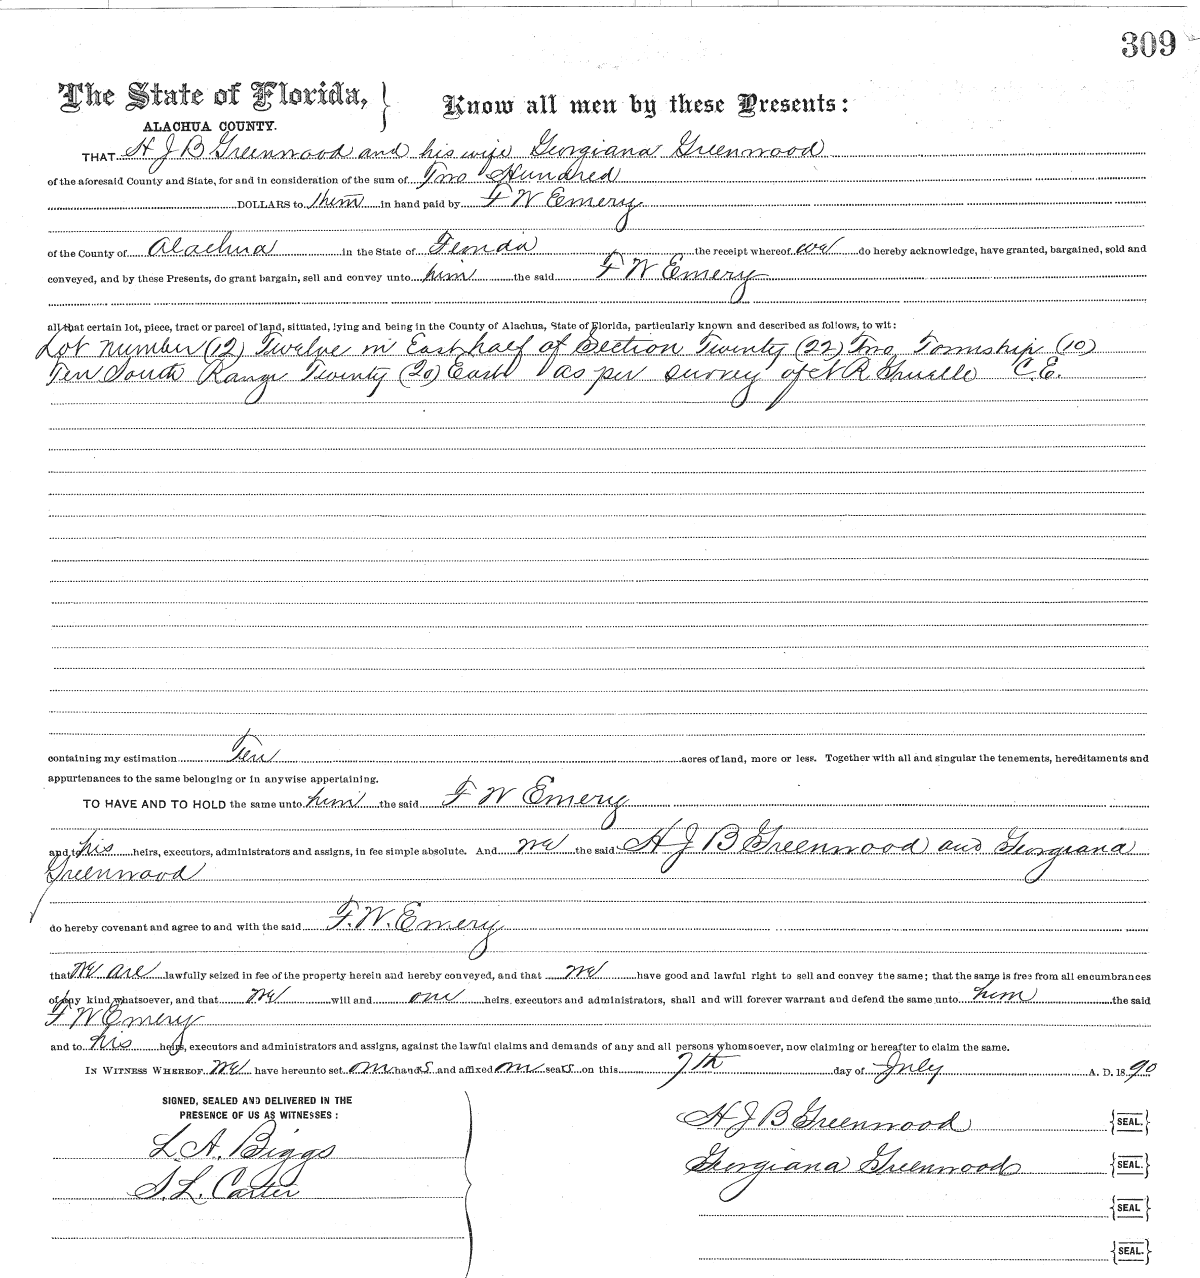 309
The State of Florida, } Know all men by these Presents:
ALACHUA COUNTY.
THAT H J B Greenwood and his wife Georgiana Greenwood
of the aforesaid County and State, for and in consideration of the sum of Two Hundred
DOLLARS to them in hand paid by F W Emery
of the County of Alachua in the State of Florida the receipt whereof we do hereby acknowledge, have granted, bargained, sold and
conveyed, and by these Presents, do grant bargain, sell and convey unto him the said F W Emery
all that certain lot, piece, tract or parcel of land, situated, lying and being in the County of Alachua, State of Florida, particularly known and described as follows, to wit:
Lot number (12) Twelve in East half of Section Twenty (22) Two Township (10)
Ten South Range Twenty (20) East as per survey of N R C.E.
containing my estimation Ten acres of land, more or less. Together with all and singular the tenements, hereditaments and
appurtenances to the same belonging or in anywise appertaining.
TO HAVE AND TO HOLD the same unto him the said F W Emery
and to his heirs, executors, administrators and assigns, in fee simple absolute. And we the said H J B Greenwood and Georgiana
Greenwood
do hereby covenant and agree to and with the said F. W. Emery
that we are lawfully seized in fee of the property herein and hereby conveyed, and that we have good and lawful right to sell and convey the same; that the same is free from all encumbrances
of any kind whatsoever, and that we will and our heirs, executors and administrators, shall and will forever warrant and defend the same unto him the said
F W Emery
and to his heirs, executors and administrators and assigns, against the lawful claims and demands of any and all persons whomsoever, now claiming or hereafter to claim the same.
IN WITNESS WHEREOF we have hereunto set our hands and affixed our seals on this 7th day of July A. D. 1890
SIGNED, SEALED AND DELIVERED IN THE
PRESENCE OF US AS WITNESSES:
L. A. Biggs
S. L. Carter
H J B Greenwood {SEAL.}
Georgiana Greenwood {SEAL.}
{SEAL}
{SEAL.}